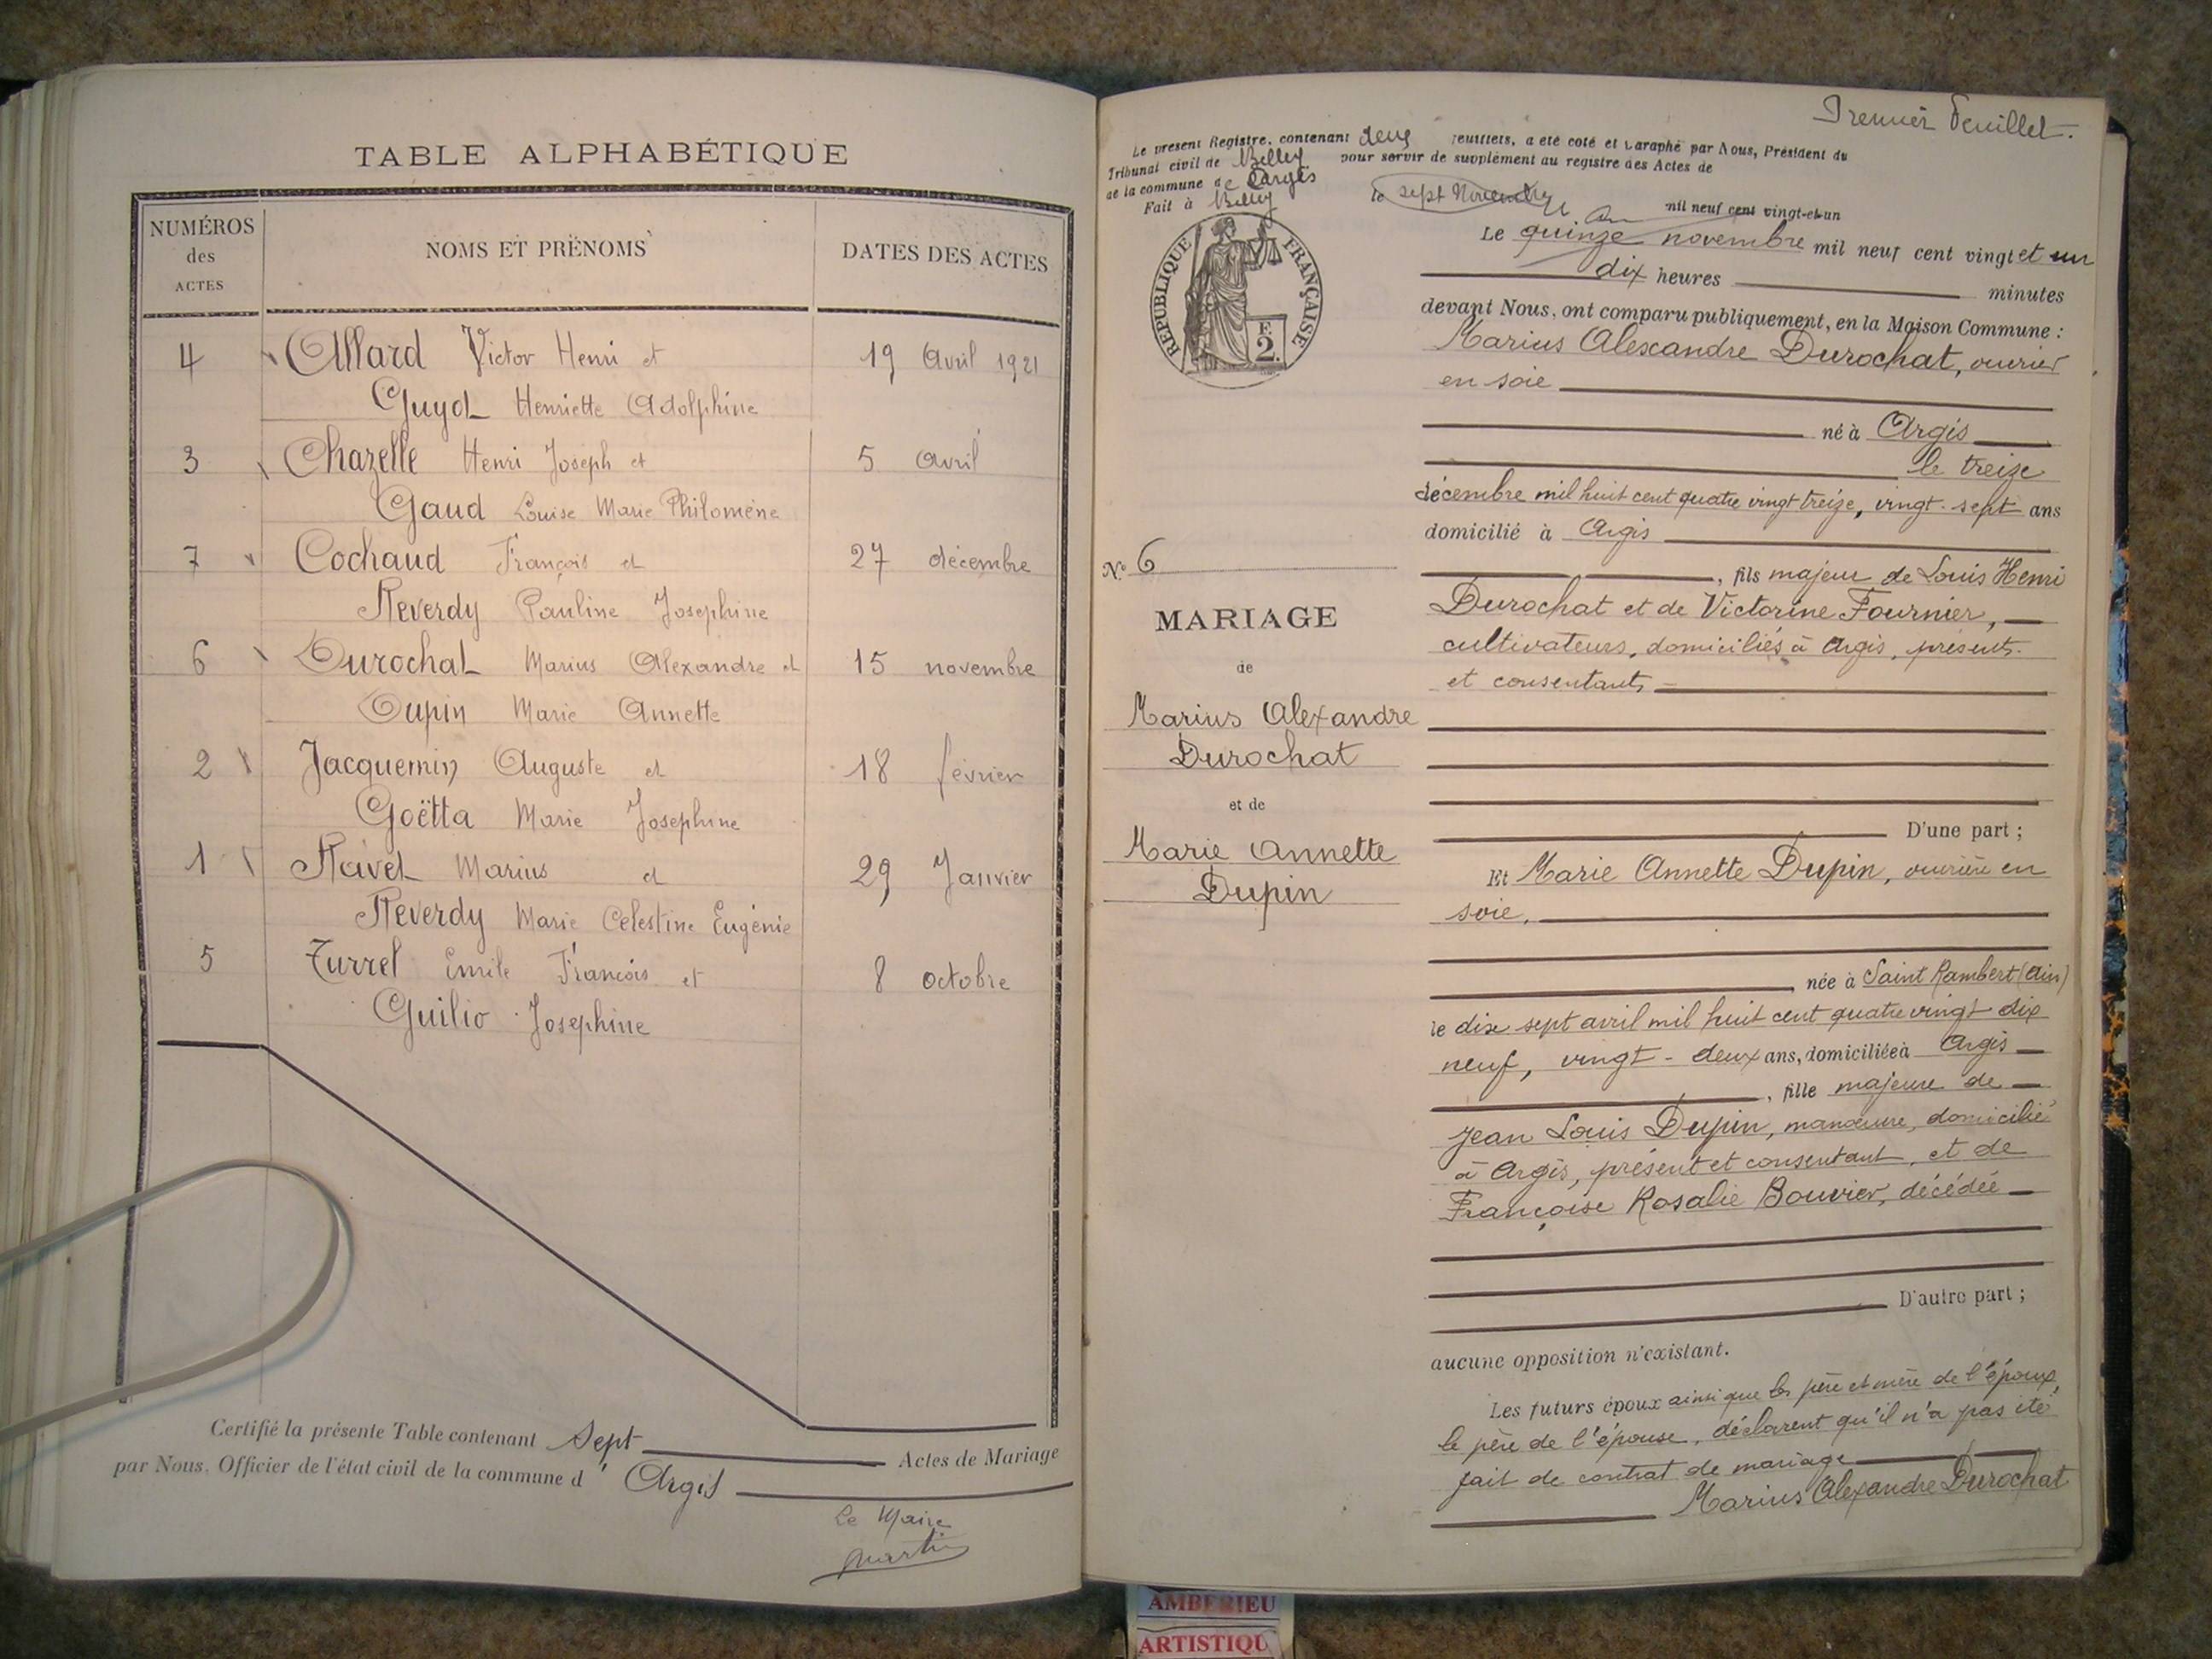 TABLE ALPHABÉTIQUE
NUMÉROS des ACTES
NOMS ET PRÉNOMS
DATES DES ACTES
4 Allard Victor Henri et 19 Avril 1921
Guyot Henriette Adolphine
3 Chazelle Henri Joseph et 5 Avril
Gaud Louise Marie Philomène
7 Cochaud François et 27 décembre
Reverdy Pauline Josephine
6 Durochat Marius Alexandre et 15 novembre
Dupin Marie Annette
2 Jacquemin Auguste et 18 février
Goëtta Marie Josephine
1 Ravet Marius et 29 Janvier
Reverdy Marie Celestine Eugénie
5 Turrel Emile François et 8 octobre
Guilio Josephine
Certifié la présente Table contenant Sept Actes de Mariage
par Nous, Officier de l'état civil de la commune d' Argis
Le Maire
Martin
Premier Feuillet.
Le présent Registre, contenant deux feuillets, a été coté et paraphé par Nous, Président du
Tribunal civil de Belley pour servir de supplément au registre des Actes de
de la commune de Argis
Fait à Belley le sept Novembre mil neuf cent vingt-et-un
RÉPUBLIQUE FRANÇAISE
F.
2.
Le quinze novembre mil neuf cent vingt et un
dix heures minutes
devant Nous, ont comparu publiquement, en la Maison Commune :
Marius Alexandre Durochat, ouvrier
en soie
né à Argis
le treize
décembre mil huit cent quatre vingt treize, vingt-sept ans
domicilié à Argis
, fils majeur de Louis Henri
Durochat et de Victorine Fournier,
cultivateurs, domiciliés à Argis, présents
et consentants
D'une part ;
N° 6
MARIAGE
de
Marius Alexandre
Durochat
et de
Marie Annette
Dupin
Et Marie Annette Dupin, ouvrière en
soie,
née à Saint Rambert (Ain)
le dix sept avril mil huit cent quatre vingt dix
neuf, vingt-deux ans, domiciliée à Argis
, fille majeure de
Jean Louis Dupin, manœuvre, domicilié
à Argis, présent et consentant, et de
Françoise Rosalie Bouvier, décédée
D'autre part ;
aucune opposition n'existant.
Les futurs époux ainsi que les père et mère de l'époux,
le père de l'épouse, déclarent qu'il n'a pas été
fait de contrat de mariage
Marius Alexandre Durochat
AMBERIEU
ARTISTIQU